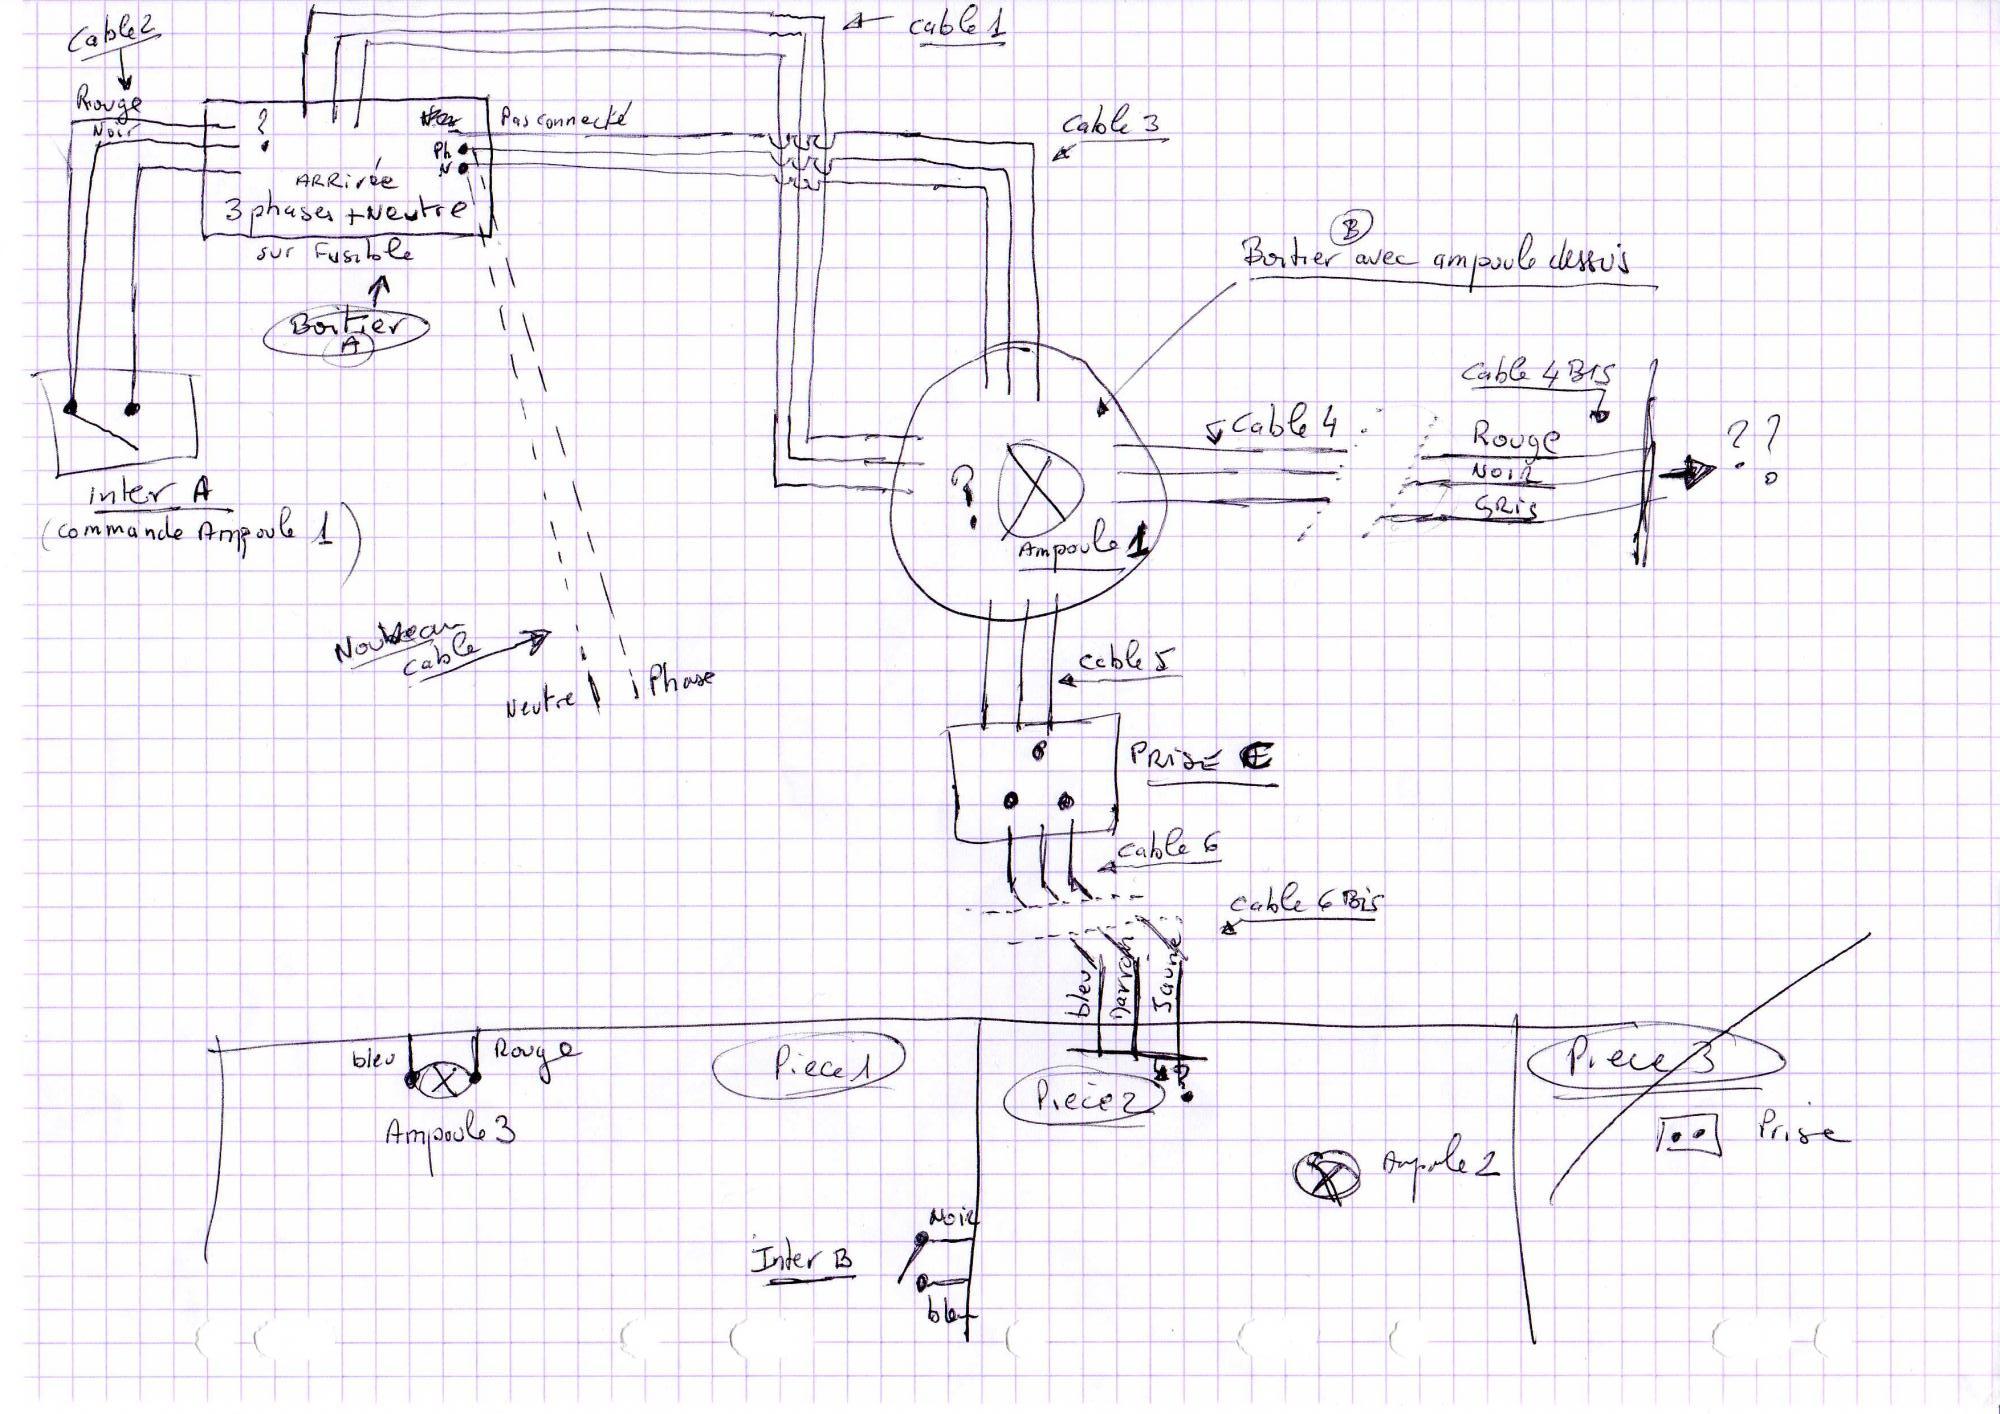 Cable 2
cable 1
Rouge
Noir
?
Pas connecté
Ph
N
ARRivée
3 phases + Neutre
sur Fusible
Boitier
A
cable 3
B
Boitier avec ampoule dessus
inter A
(commande Ampoule 1)
?
Ampoule 1
Cable 4
Cable 4 BIS
Rouge
NOIR
GRIS
? ?
Nouveau
cable
Neutre
Phase
cable 5
PRISE C
cable 6
cable 6 Bis
bleu
Marron
Jaune
?
bleu
Rouge
Ampoule 3
Piece 1
Pièce 2
Piece 3
Prise
Ampoule 2
Inter B
NOIR
bleu